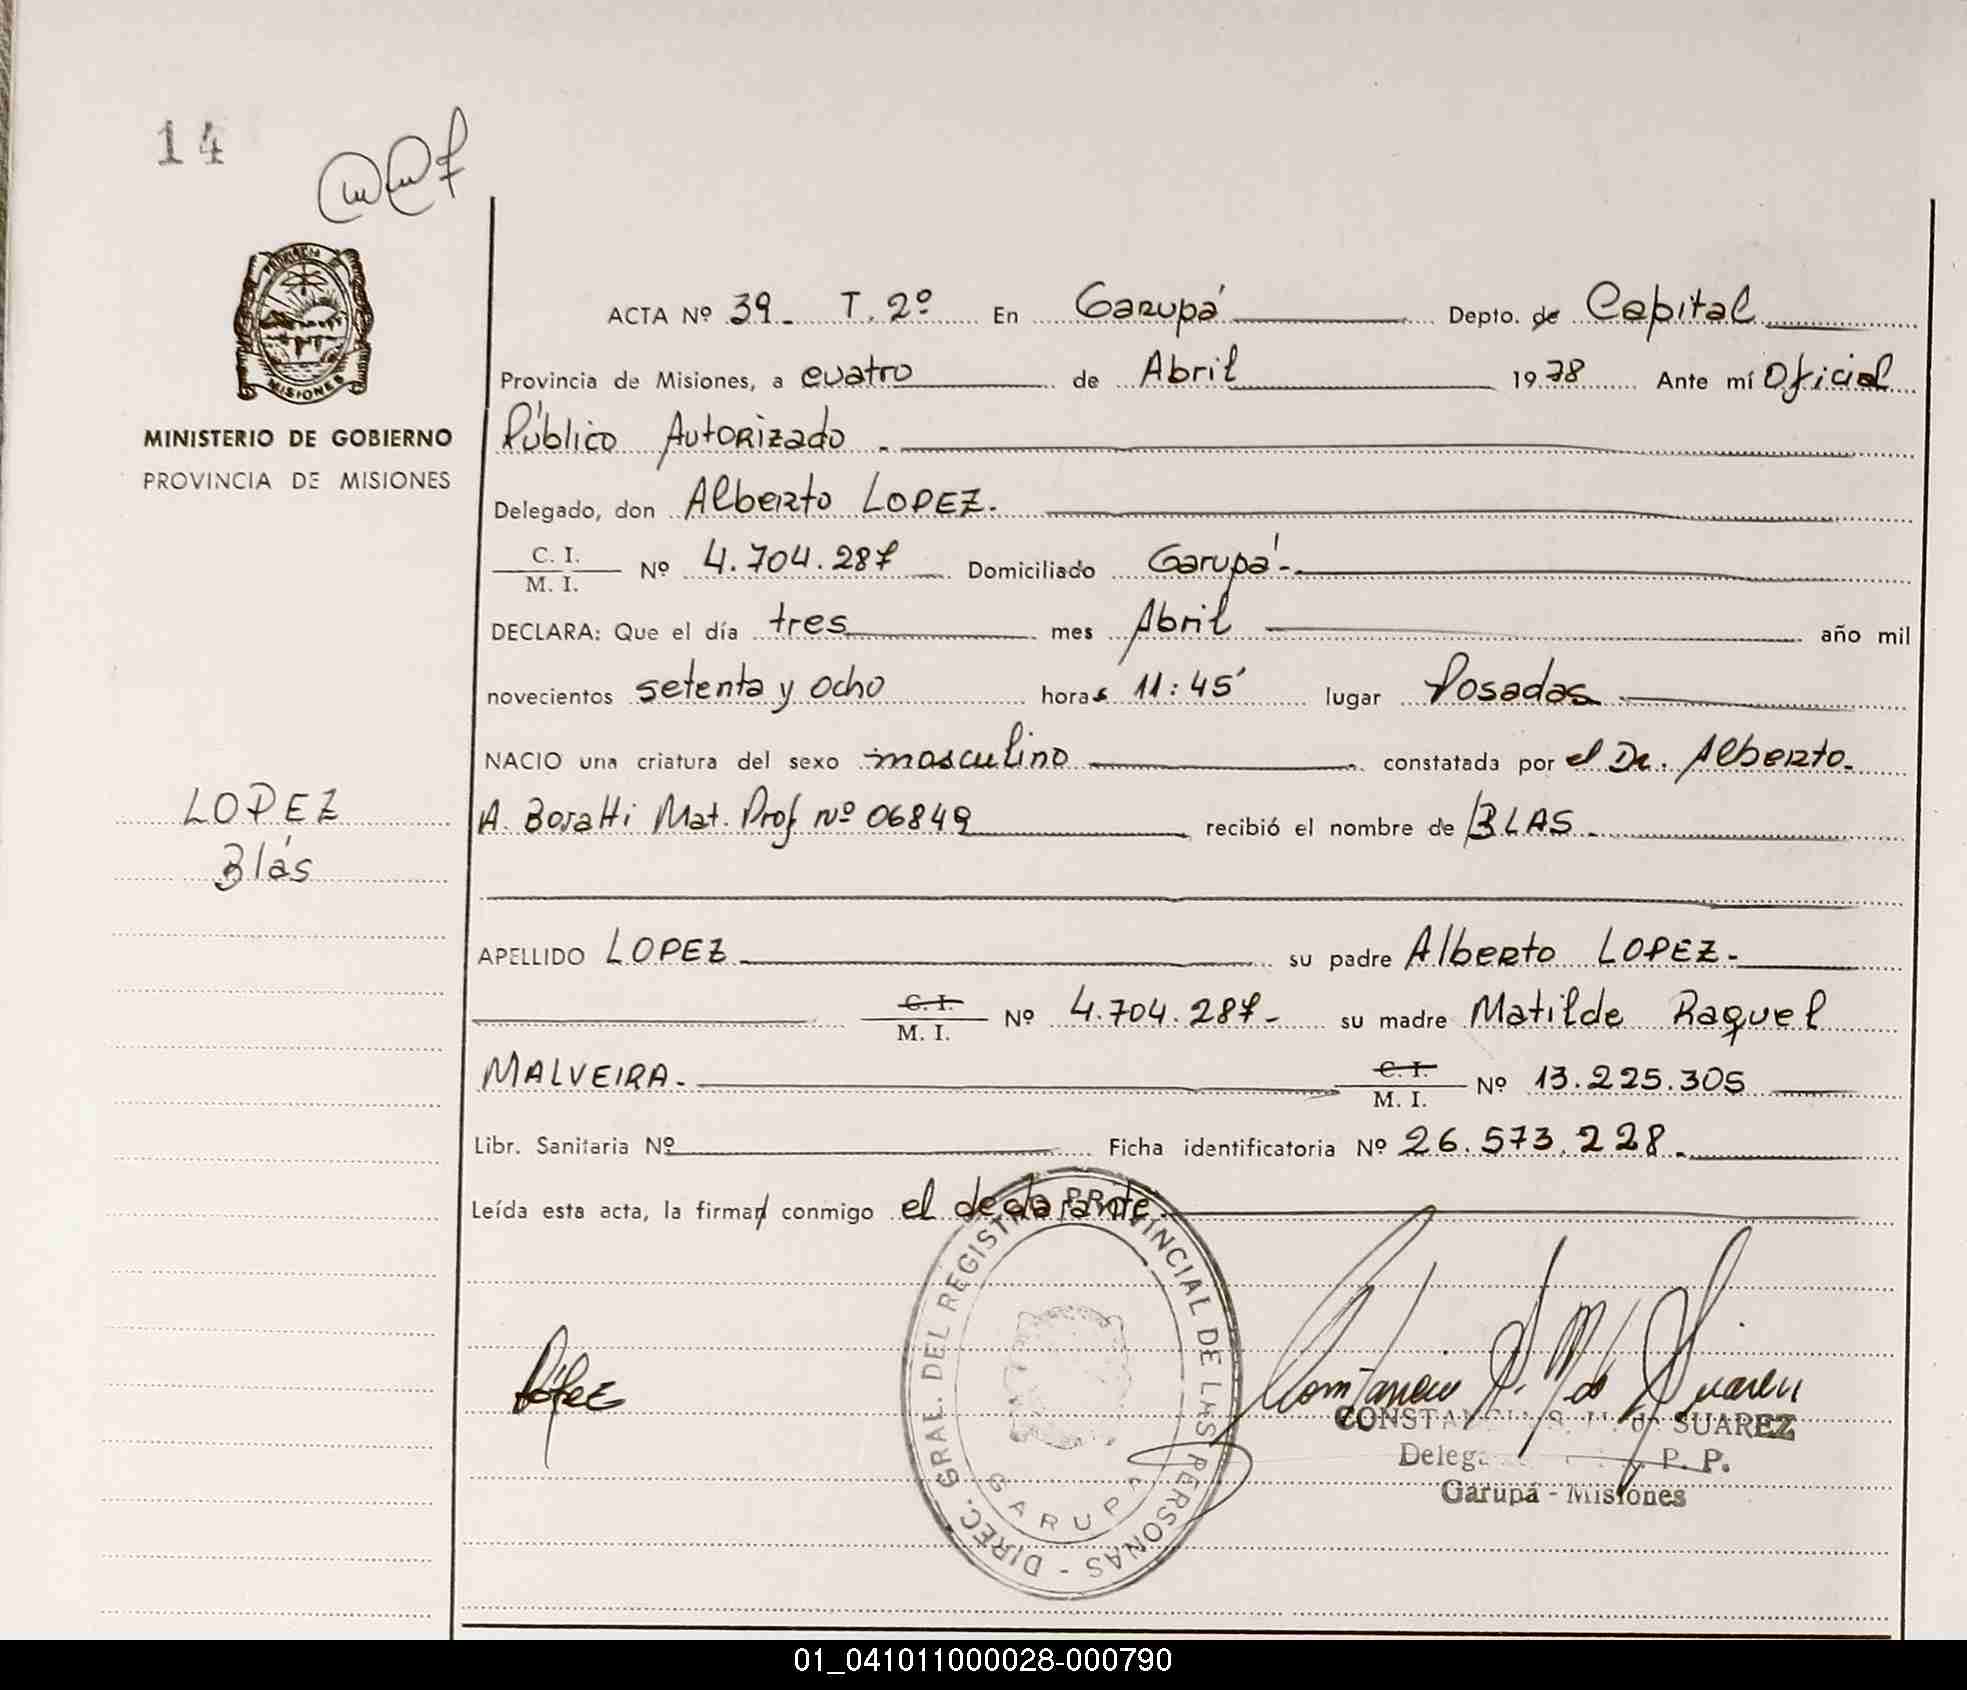 14
PROVINCIA DE
MISIONES
MINISTERIO DE GOBIERNO
PROVINCIA DE MISIONES
ACTA Nº 39 T. 2º En Garupá Depto. de Capital
Provincia de Misiones, a cuatro de Abril 1978 Ante mí Oficial
Público Autorizado.
Delegado, don Alberto LOPEZ.
C. I.
M. I. Nº 4.704.287 Domiciliado Garupá.
DECLARA: Que el día tres mes Abril año mil
novecientos setenta y ocho horas 11:45' lugar Posadas
NACIO una criatura del sexo masculino constatada por el Dr. Alberto
A. Boratti Mat. Prof Nº 06849 recibió el nombre de BLAS
LOPEZ
Blás
APELLIDO LOPEZ su padre Alberto LOPEZ.
C. I.
M. I. Nº 4.704.287 su madre Matilde Raquel
MALVEIRA.
C. I.
M. I. Nº 13.225.305
Libr. Sanitaria Nº Ficha identificatoria Nº 26.573.228
Leída esta acta, la firman conmigo el declarante
DIREC. GRAL. DEL REGISTRO PROVINCIAL DE LAS PERSONAS -
GARUPA
López
SUAREZ
P. P.
Garupá - Misiones
01_041011000028-000790